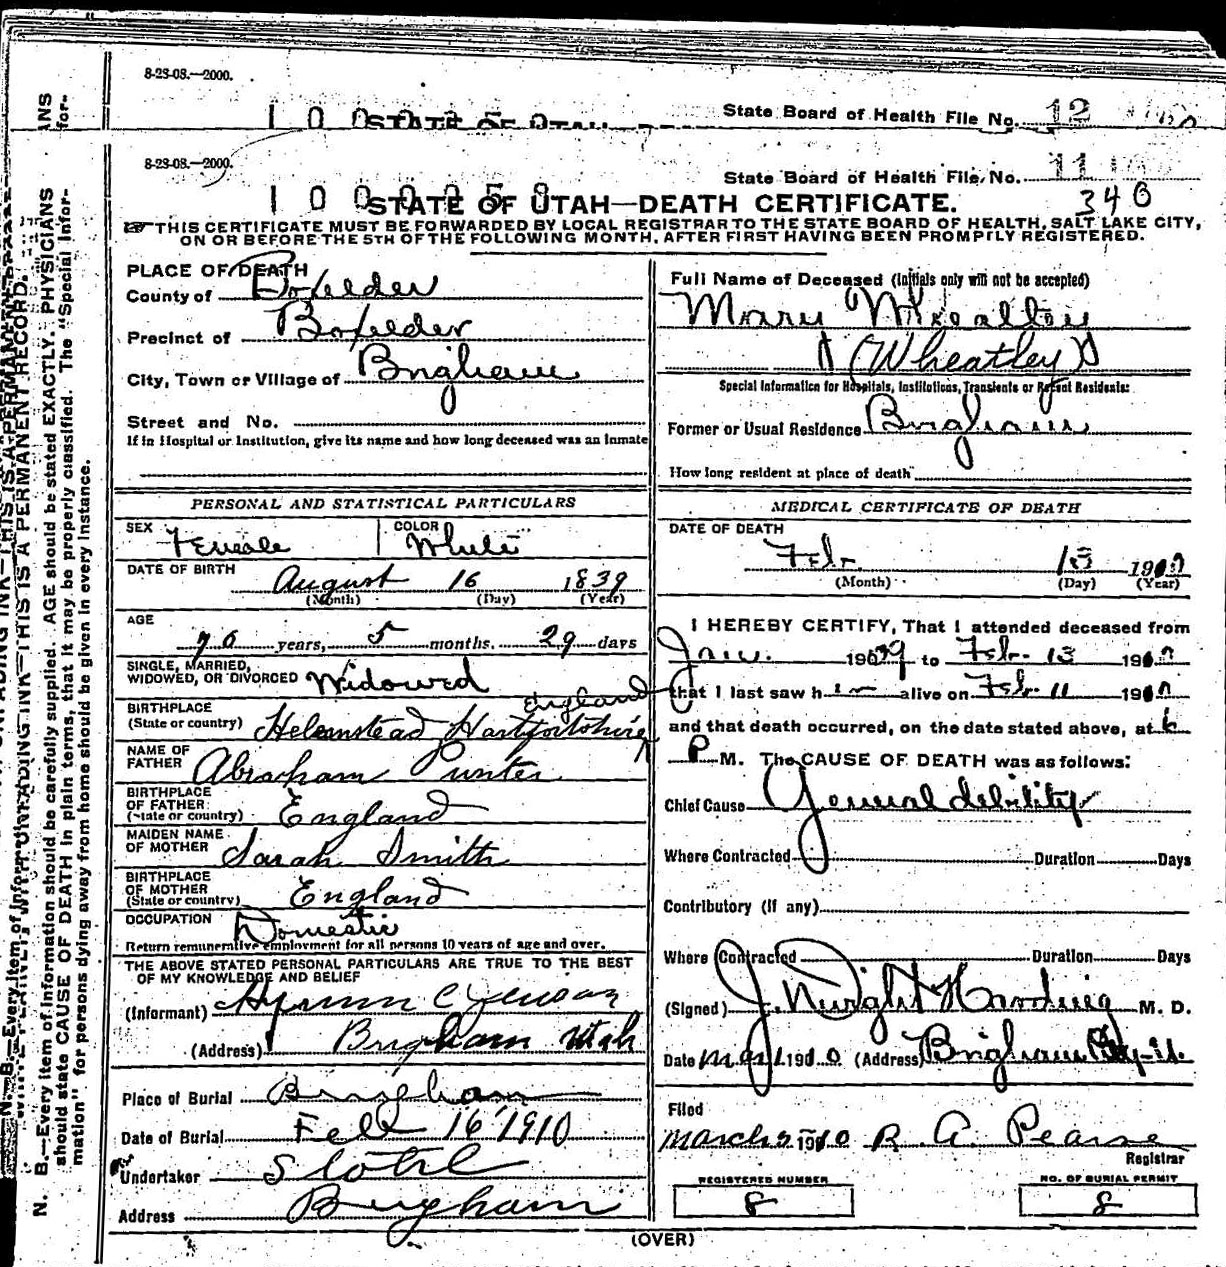 8-23-08.—2000.
State Board of Health File No. 12
8-23-08.—2000.
State Board of Health File No. 11
340
STATE OF UTAH—DEATH CERTIFICATE.
THIS CERTIFICATE MUST BE FORWARDED BY LOCAL REGISTRAR TO THE STATE BOARD OF HEALTH, SALT LAKE CITY,
ON OR BEFORE THE 5TH OF THE FOLLOWING MONTH, AFTER FIRST HAVING BEEN PROMPTLY REGISTERED.
PLACE OF DEATH
County of Boxelder
Precinct of Boxelder
City, Town or Village of Brigham
Street and No.
If in Hospital or Institution, give its name and how long deceased was an inmate
PERSONAL AND STATISTICAL PARTICULARS
SEX Female COLOR White
DATE OF BIRTH August 16 1839
(Month) (Day) (Year)
AGE
70 years, 5 months. 29 days
SINGLE, MARRIED,
WIDOWED, OR DIVORCED Widowed
BIRTHPLACE England
(State or country) Helemstead Hartfortshire
NAME OF
FATHER Abraham Punter
BIRTHPLACE
OF FATHER
(State or country) England
MAIDEN NAME
OF MOTHER Sarah Smith
BIRTHPLACE
OF MOTHER
(State or country) England
OCCUPATION Domestic
Return remunerative employment for all persons 10 years of age and over.
THE ABOVE STATED PERSONAL PARTICULARS ARE TRUE TO THE BEST
OF MY KNOWLEDGE AND BELIEF
(Informant) Hyrum C Jensen
(Address) Brigham Utah
Place of Burial Brigham
Date of Burial Feb 16 1910
Undertaker
Address Brigham
Full Name of Deceased (Initials only will not be accepted)
Mary
(Wheatley)
Special Information for Hospitals, Institutions, Transients or Recent Residents:
Former or Usual Residence Brigham
How long resident at place of death
MEDICAL CERTIFICATE OF DEATH
DATE OF DEATH
Febr. 13 1910
(Month) (Day) (Year)
I HEREBY CERTIFY, That I attended deceased from
Jan. 1909 to Febr. 13 1910
that I last saw h alive on Febr. 11 1910
and that death occurred, on the date stated above, at 6
P M. The CAUSE OF DEATH was as follows:
Chief Cause General debility
Where Contracted Duration Days
Contributory (If any)
Where Contracted Duration Days
(Signed) J. Dwight Harding M. D.
Date Mar 1 1910 (Address) Brigham City-U.
Filed
March 5 1910 R. A. Pearse
Registrar
REGISTERED NUMBER
8
NO. OF BURIAL PERMIT
8
(OVER)
N. B.—Every item of information should be carefully supplied. AGE should be stated EXACTLY. PHYSICIANS
should state CAUSE OF DEATH in plain terms, that it may be properly classified. The "Special Infor-
mation" for persons dying away from home should be given in every instance.